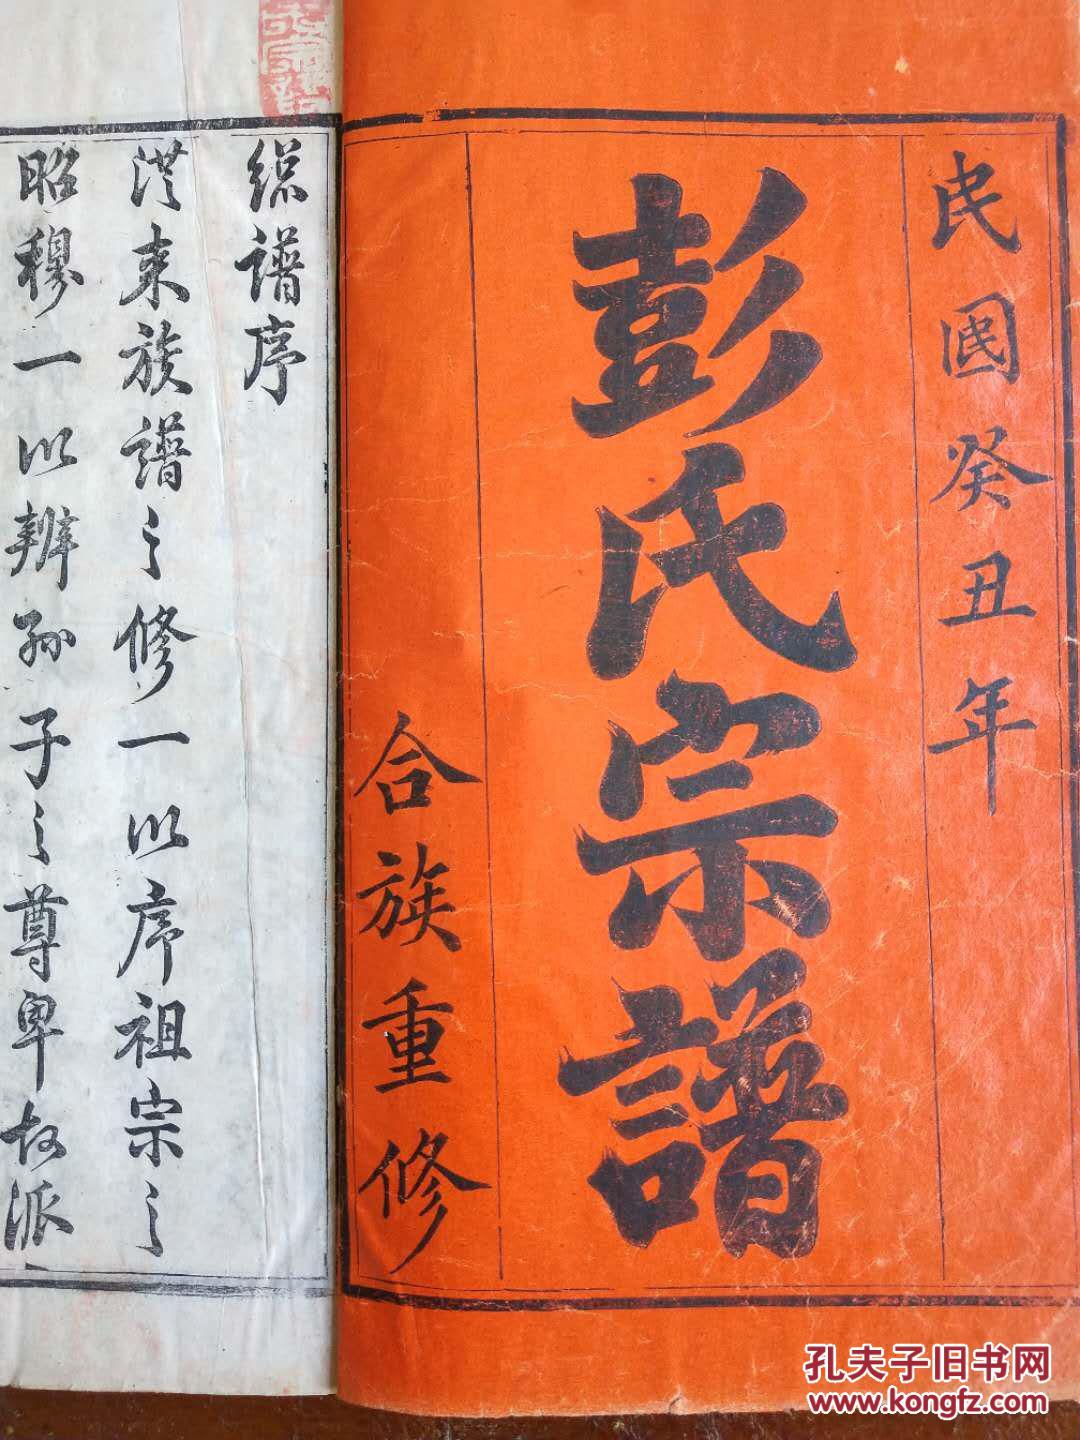 民國癸丑年
彭氏宗譜
合族重修
総譜序
從来族譜之修一以序祖宗之
昭穆一以辨孫子之尊卑故派
孔夫子旧书网
www.kongfz.com